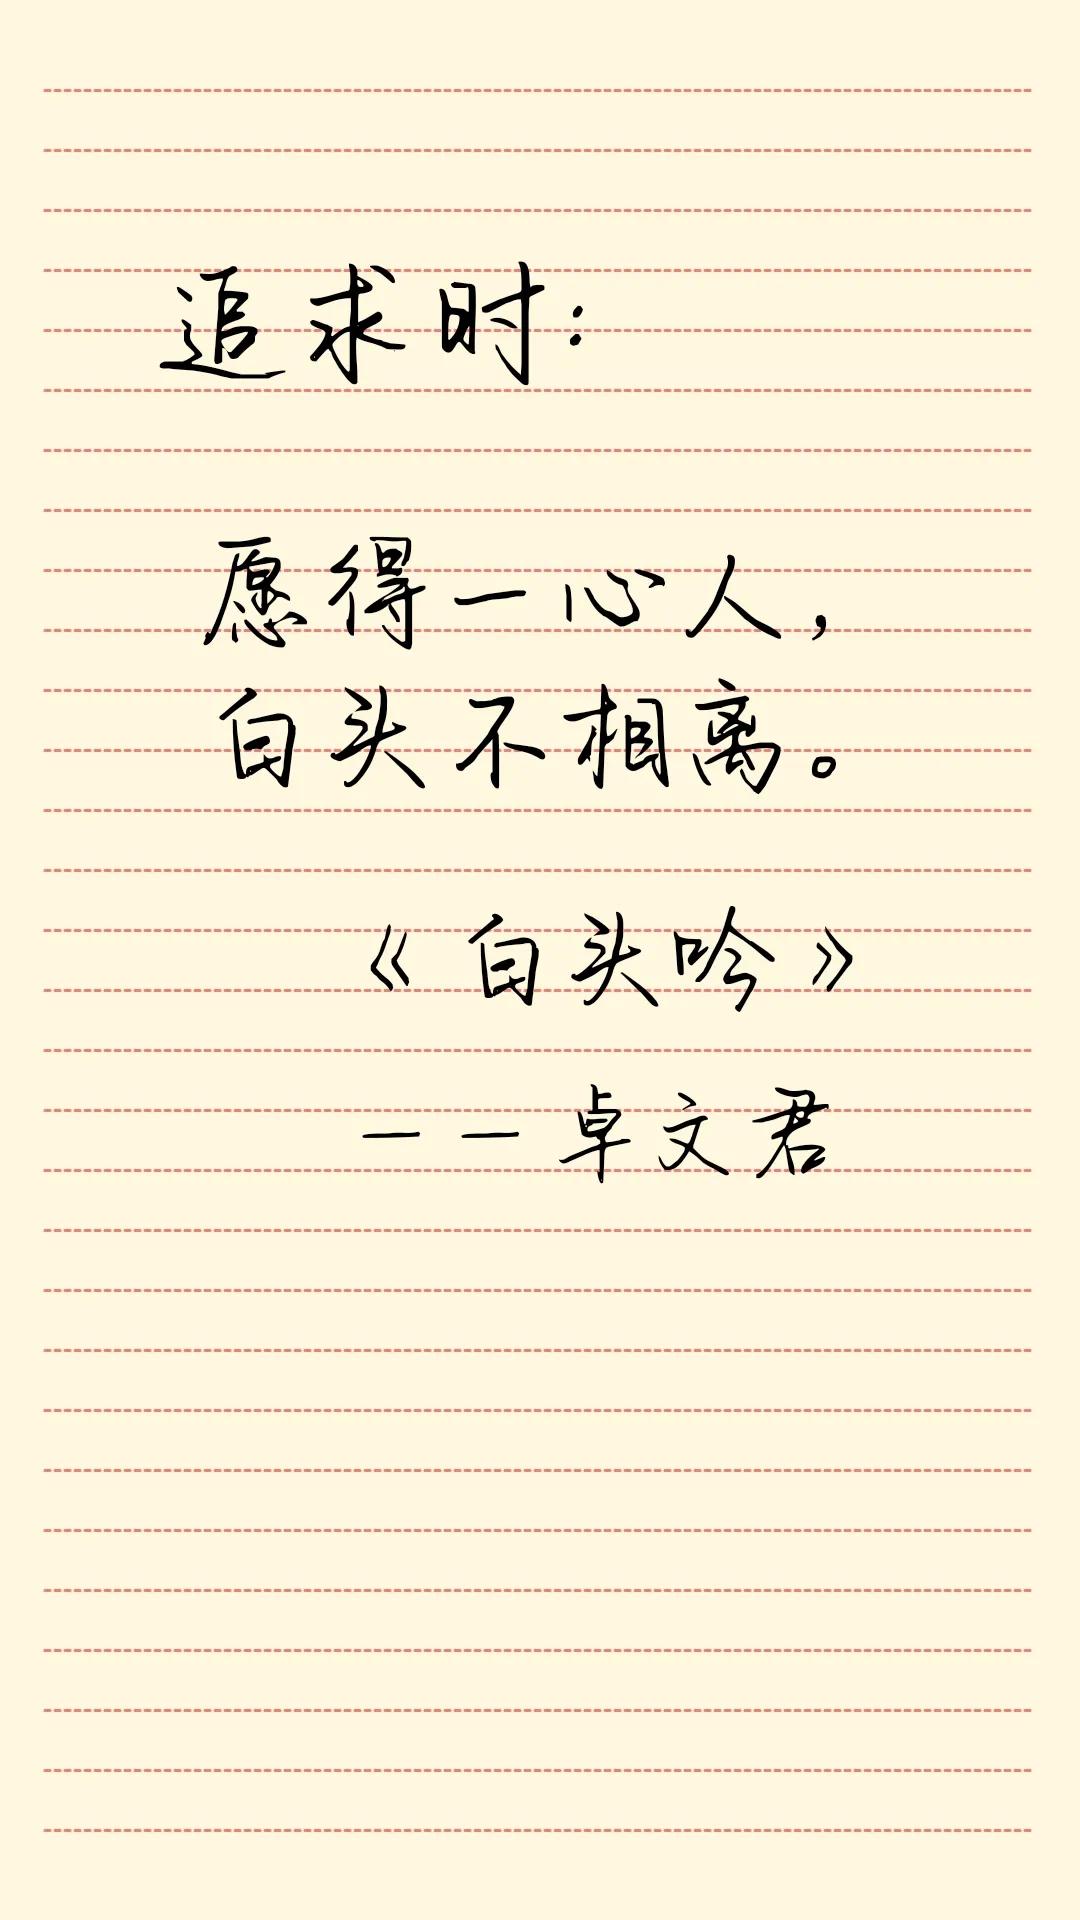 追求时:
愿得一心人,
白头不相离。
《白头吟》
——卓文君